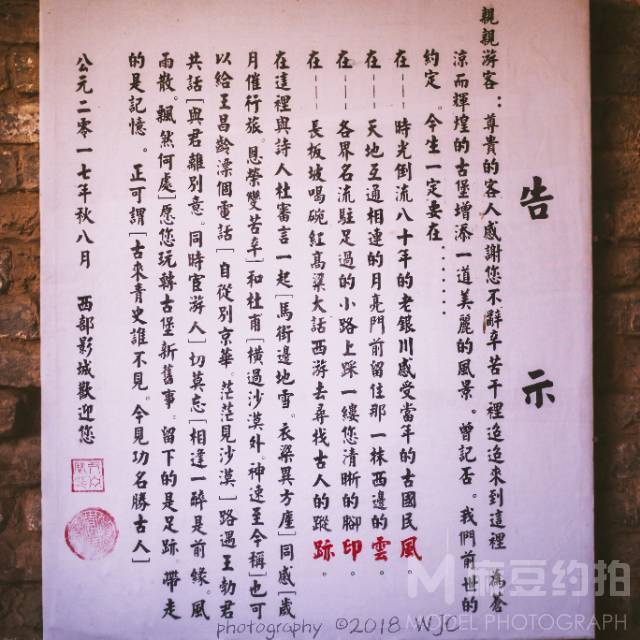 告示
親親游客：尊貴的客人感謝您不辭辛苦千裡迢迢來到這裡　為蒼
涼而輝煌的古堡增添一道美麗的風景。曾記否。我們前世的
約定。今生一定要在……
在——時光倒流八十年的老銀川感受當年的古國民風。
在——天地互通相連的月亮門前留住那一抹西邊的雲。
在——各界名流駐足過的小路上踩一縷您清晰的腳印。
在——長板坡喝碗紅高粱大話西游去尋找古人的蹤跡。
在這裡與詩人杜審言一起[馬銜邊地雪。衣染異方塵]同感[歲
月催行旅。恩榮變苦辛]和杜甫[橫過沙漠外。神速至今稱]也可
以給王昌齡漂個電話[自從別京華。茫茫見沙漠]路遇王勃君
共話[與君離別意。同時宦游人]切莫忘[相逢一醉是前緣。風
雨散。飄然何處]愿您玩轉古堡新舊事。留下的是足跡。帶走
的是記憶。正可謂[古來青史誰不見。今見功名勝古人]
公元二零一七年秋八月　西部影城歡迎您
麻豆约拍
MOJCEL PHOTOGRAPH
photography ©2018 WJC